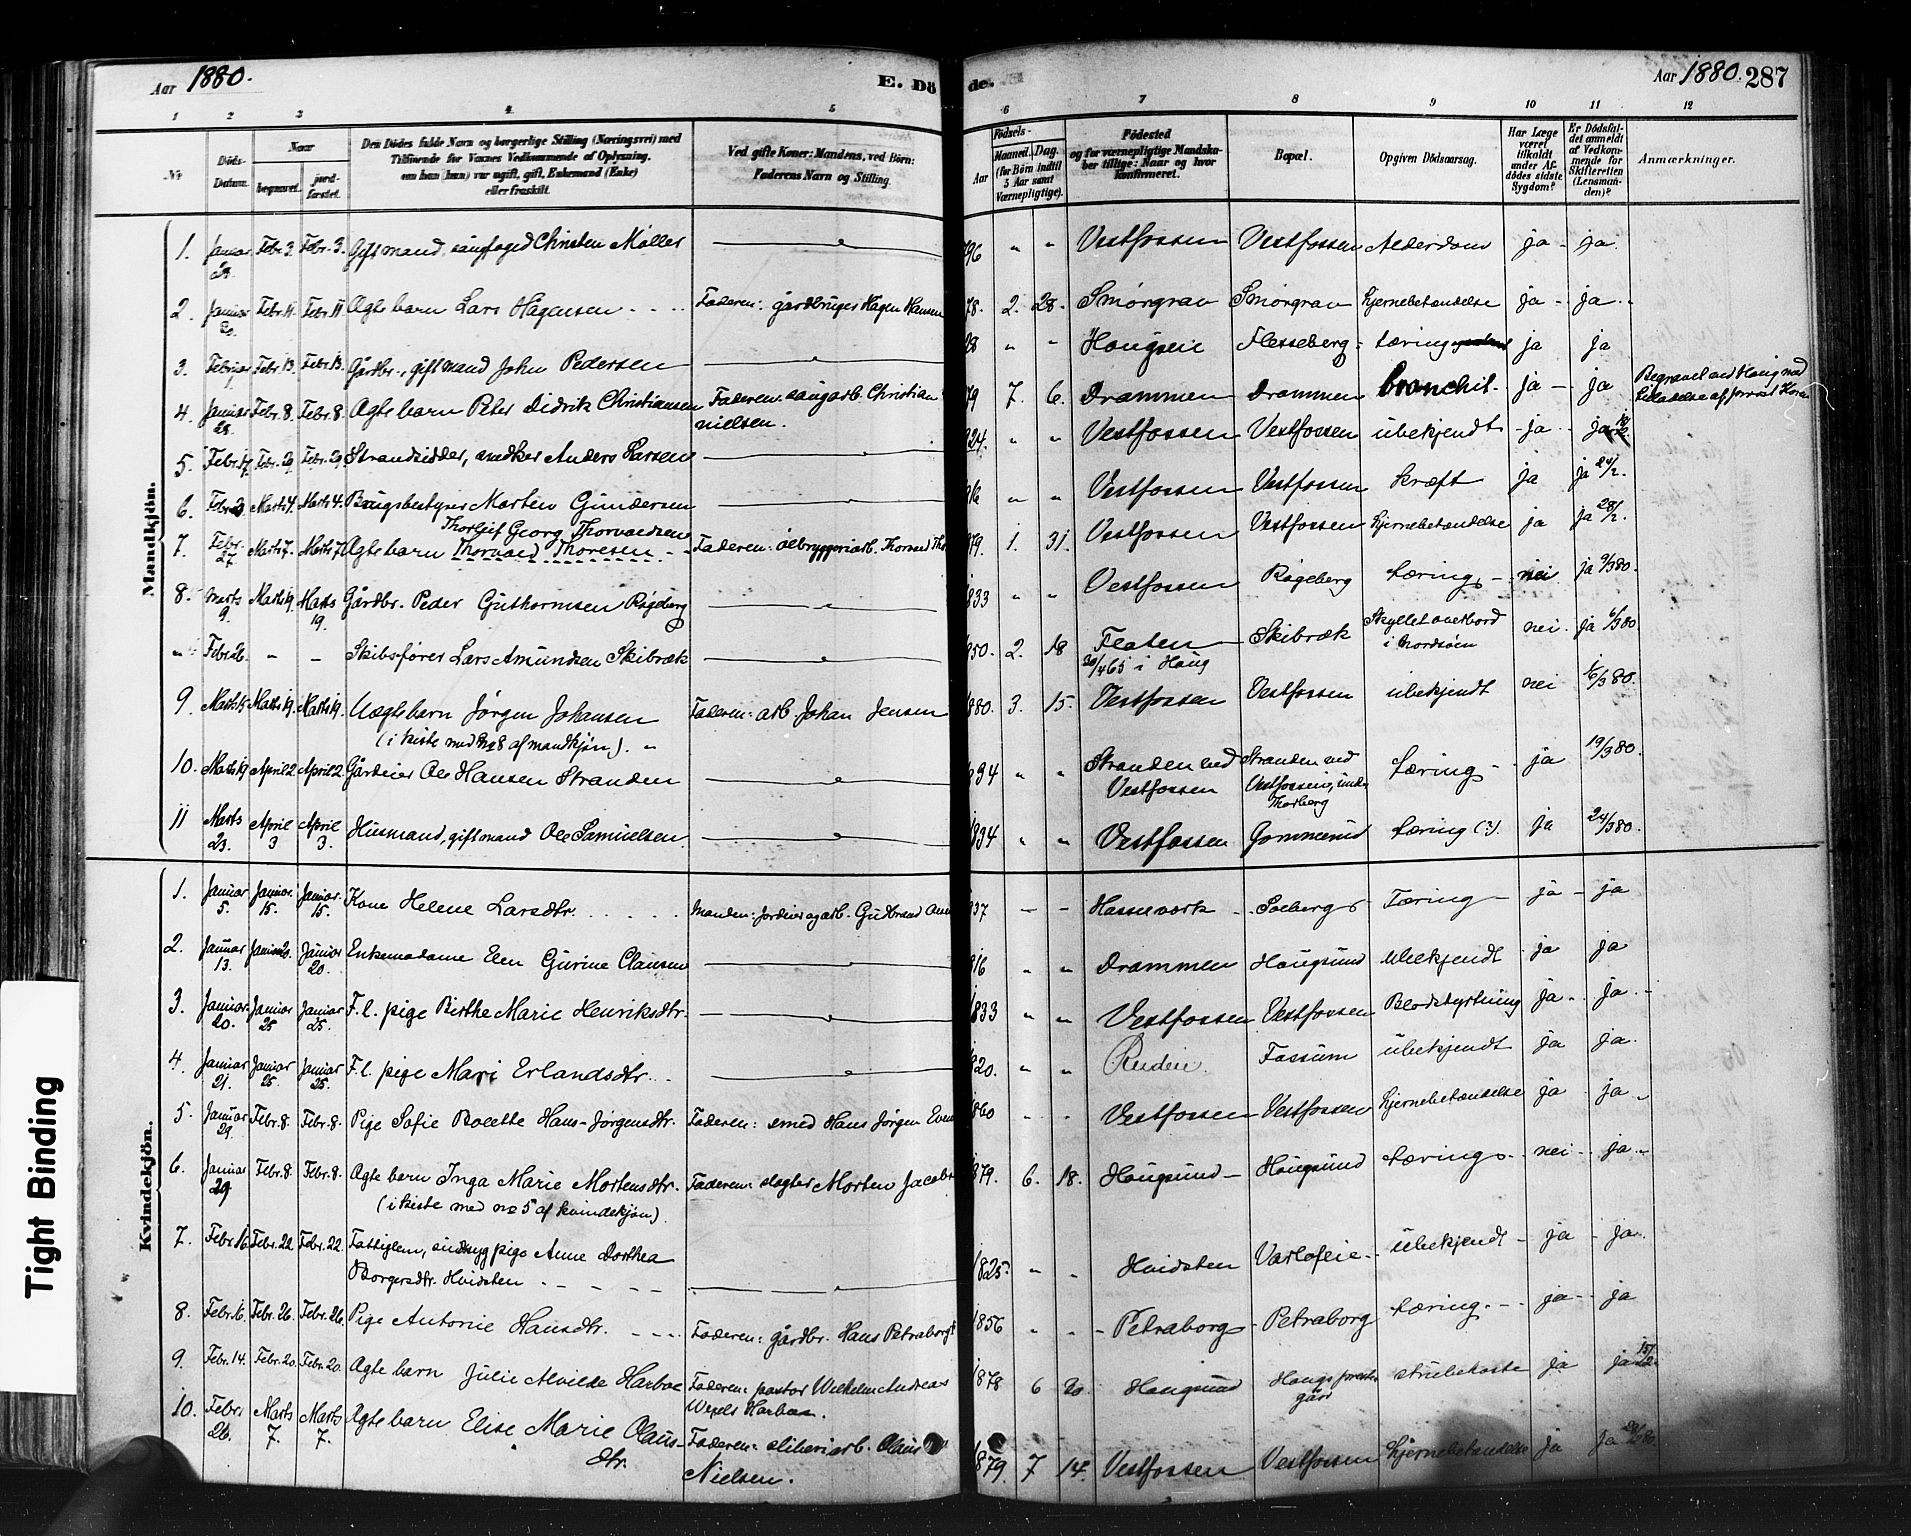 Aar 1880.
E. Dö
de.
Aar 1880. 287
1 2 3 4 5 6 7 8 9 10 11 12
No
Döds-
Datum.
Naar
begravet.
jord-
fæstet.
Den Dödes fulde Navn og borgerlige Stilling (Næringsvei) med
Tilföiende for Voxnes Vedkommende af Oplysning,
om han (hun) var ugift, gift, Enkemand (Enke)
eller fraskilt.
Ved gifte Koner: Mandens, ved Börn:
Faderens Navn og Stilling.
Födsels-
Aar
Maaned. Dag.
(for Börn indtil
5 Aar samt
Værnepligtige).
Födested
og for værnepligtige Mandska-
ber tillige: Naar og hvor
konfirmeret.
Bopæl.
Opgiven Dödsaarsag.
Har Læge
været
tilkaldt
under Af-
dödes sidste
Sygdom?
Er Dödsfal-
det anmeldt
af Vedkom-
mende for
Skifteretten
(Lensman-
den)?
Anmærkninger.
Mandkjön.
1. Januar Febr. 3 Febr. 3. Gift mand, Christen Møller 96 " " Vestfossen Vestfossen Alderdom ja - ja.
2. Januar Febr. 11 Febr. 11 Ægte barn Lars Hågensen Faderen: gårdbruger Hågen Hansen 78. 2. 28. Smörgrav Smörgrav hjernebetændelse ja - ja.
3. Februar Febr. 13 Febr. 13. Gårdbr., gift mand John Pedersen 28 " " Hougseie Flesseberg tæring ja ja
4. Januar 28. Febr. 8. Febr. 8. Ægte barn Peter Didrik Christiansen Faderen: saugarb. Christian 79 7. 6. Drammen Drammen bronchit. ja - ja Begravet ved Houg med
nielsen. tilladelse af
5. Febr. 17. Febr. 29. Febr. 29. Strandsidder, snedker Anders Larsen 24. " " Vestfossen Vestfossen ubekjendt ja ja
6. Febr. Marts 4. Marts 4. Brugsbestyrer Morten Gundersen " " Vestfossen Vestfossen kræft ja ja 24/2.
Thorleif Georg Thorvaldsen
7. Febr. 27. Marts 7. Marts 7 Ægte barn Thorvald Thoresen Faderen: ølbryggeriarb. Thorvald 79. 1. 31. Vestfossen Vestfossen hjernebetændelse ja ja 28/2.
8. Marts 9. Marts 19. Marts 19. Gårdbr. Peder Guthormsen Røgeberg 833 " " Vestfossen Røgeberg tæring - nei ja 9/380.
" Febr. 26. - - Skibsfører Lars Amundsen Skibræk 850. 2. 18 Floten Skibræk Skyllet overbord nei ja 6/380
/465 i Houg i Nordsøen
9. Marts 15 Marts 19. Marts 19. Uægte barn Jørgen Johansen Faderen: arb. Johan Jensen 880. 3. 15. Vestfossen Vestfossen ubekjendt nei 16/380.
(i kiste med no 8 af mandkjøn). "
10. Marts 19 April 2 April 2 Gårdeier Ole Hansen Stranden " " Stranden ved Stranden ved tæring - ja 19/380.
Vestfossen Vestfossen, under
Thorberg
11 Marts 23. April 3 April 3. Husmand, gift mand Ole Samuelsen 834 " " Vestfossen Gommerud tæring (?). ja 24/380.
Kvindekjön.
1. Januar 5. Januar. 15. Januar. 15. Kone Helene Larsdtr. Manden: jordeier og arb. Gulbrand 837 - - Hasseværk Solberg Tæring - ja - ja
2. Januar 13. Januar 20. Januar 20. Enkemadame Elen Gurine Clausen 816 " " Drammen Hougsund ubekjendt ja ja
3. Januar. 20. Januar 25 Januar 25. F. l. pige Birthe Marie Henriksdtr. 833 " " Vestfossen Vestfossen Blodstyrtning ja - ja.
4. Januar 21. Januar 25. Januar 25. F. l. pige Mari Erlandsdtr. 820. " " Ruden. Fossum ubekjendt ja ja.
5. Januar 29. Febr. 8. Febr. 8. Pige Sofie Bolette Hans-Jørgensdtr. Faderen: smed Hans Jørgen 860 Vestfossen Vestfossen hjernebetændelse ja ja
6. Januar 29 Febr. 8. Febr. 8. Ægte barn Inga Marie Mortensdtr. Faderen: slagter Morten Jacobs 879. 6. 18. Hougsund - Hougsund tæring. nei - ja.
(i kiste med no 5 af kvindekjøn).
7. Febr. 16. Febr. 22 Febr. 22. Fattiglem, sindssyg pige Anne Dorthea 1825. " " Hvidsten ubekjendt - ja - ja.
Borgersdtr. Hvidsten
8. Febr. 16. Febr. 26. Febr. 26. Pige Antonie Hansdtr. Faderen: gårdbr. Hans Petraborg 1856 " " Petraborg Petraborg tæring. - ja - ja
9. Febr. 14. Febr. 20. Febr. 20. Ægte barn Julie Alvilde Harboe Faderen: pastor Wilhelm Andreas 1878 6 20. Hougsund Hougs præste- strubehoste ja ja
Wexels Harboe. gård
10. Febr. 26. Marts 7. Marts 7. Ægte barn Elise Marie Olaus- Faderen: sliberiarb. Olaus 1879. 7 14. Vestfossen Vestfossen hjernebetændelse ja ja
dtr. Nielsen.
Tight Binding